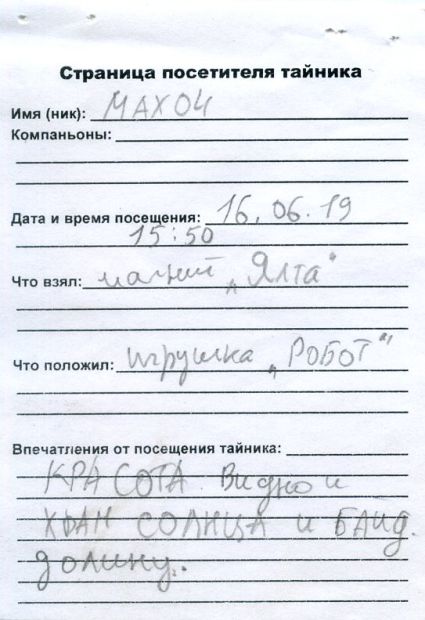 Страница посетителя тайника
Имя (ник): МАХОЧ
Компаньоны:
Дата и время посещения: 16.06.19
15:50
Что взял: магнит „Ялта"
Что положил: игрушка „РОБОТ"
Впечатления от посещения тайника:
КРАСОТА. Видно и
ХРАМ СОЛНЦА и БАЙД.
долину.